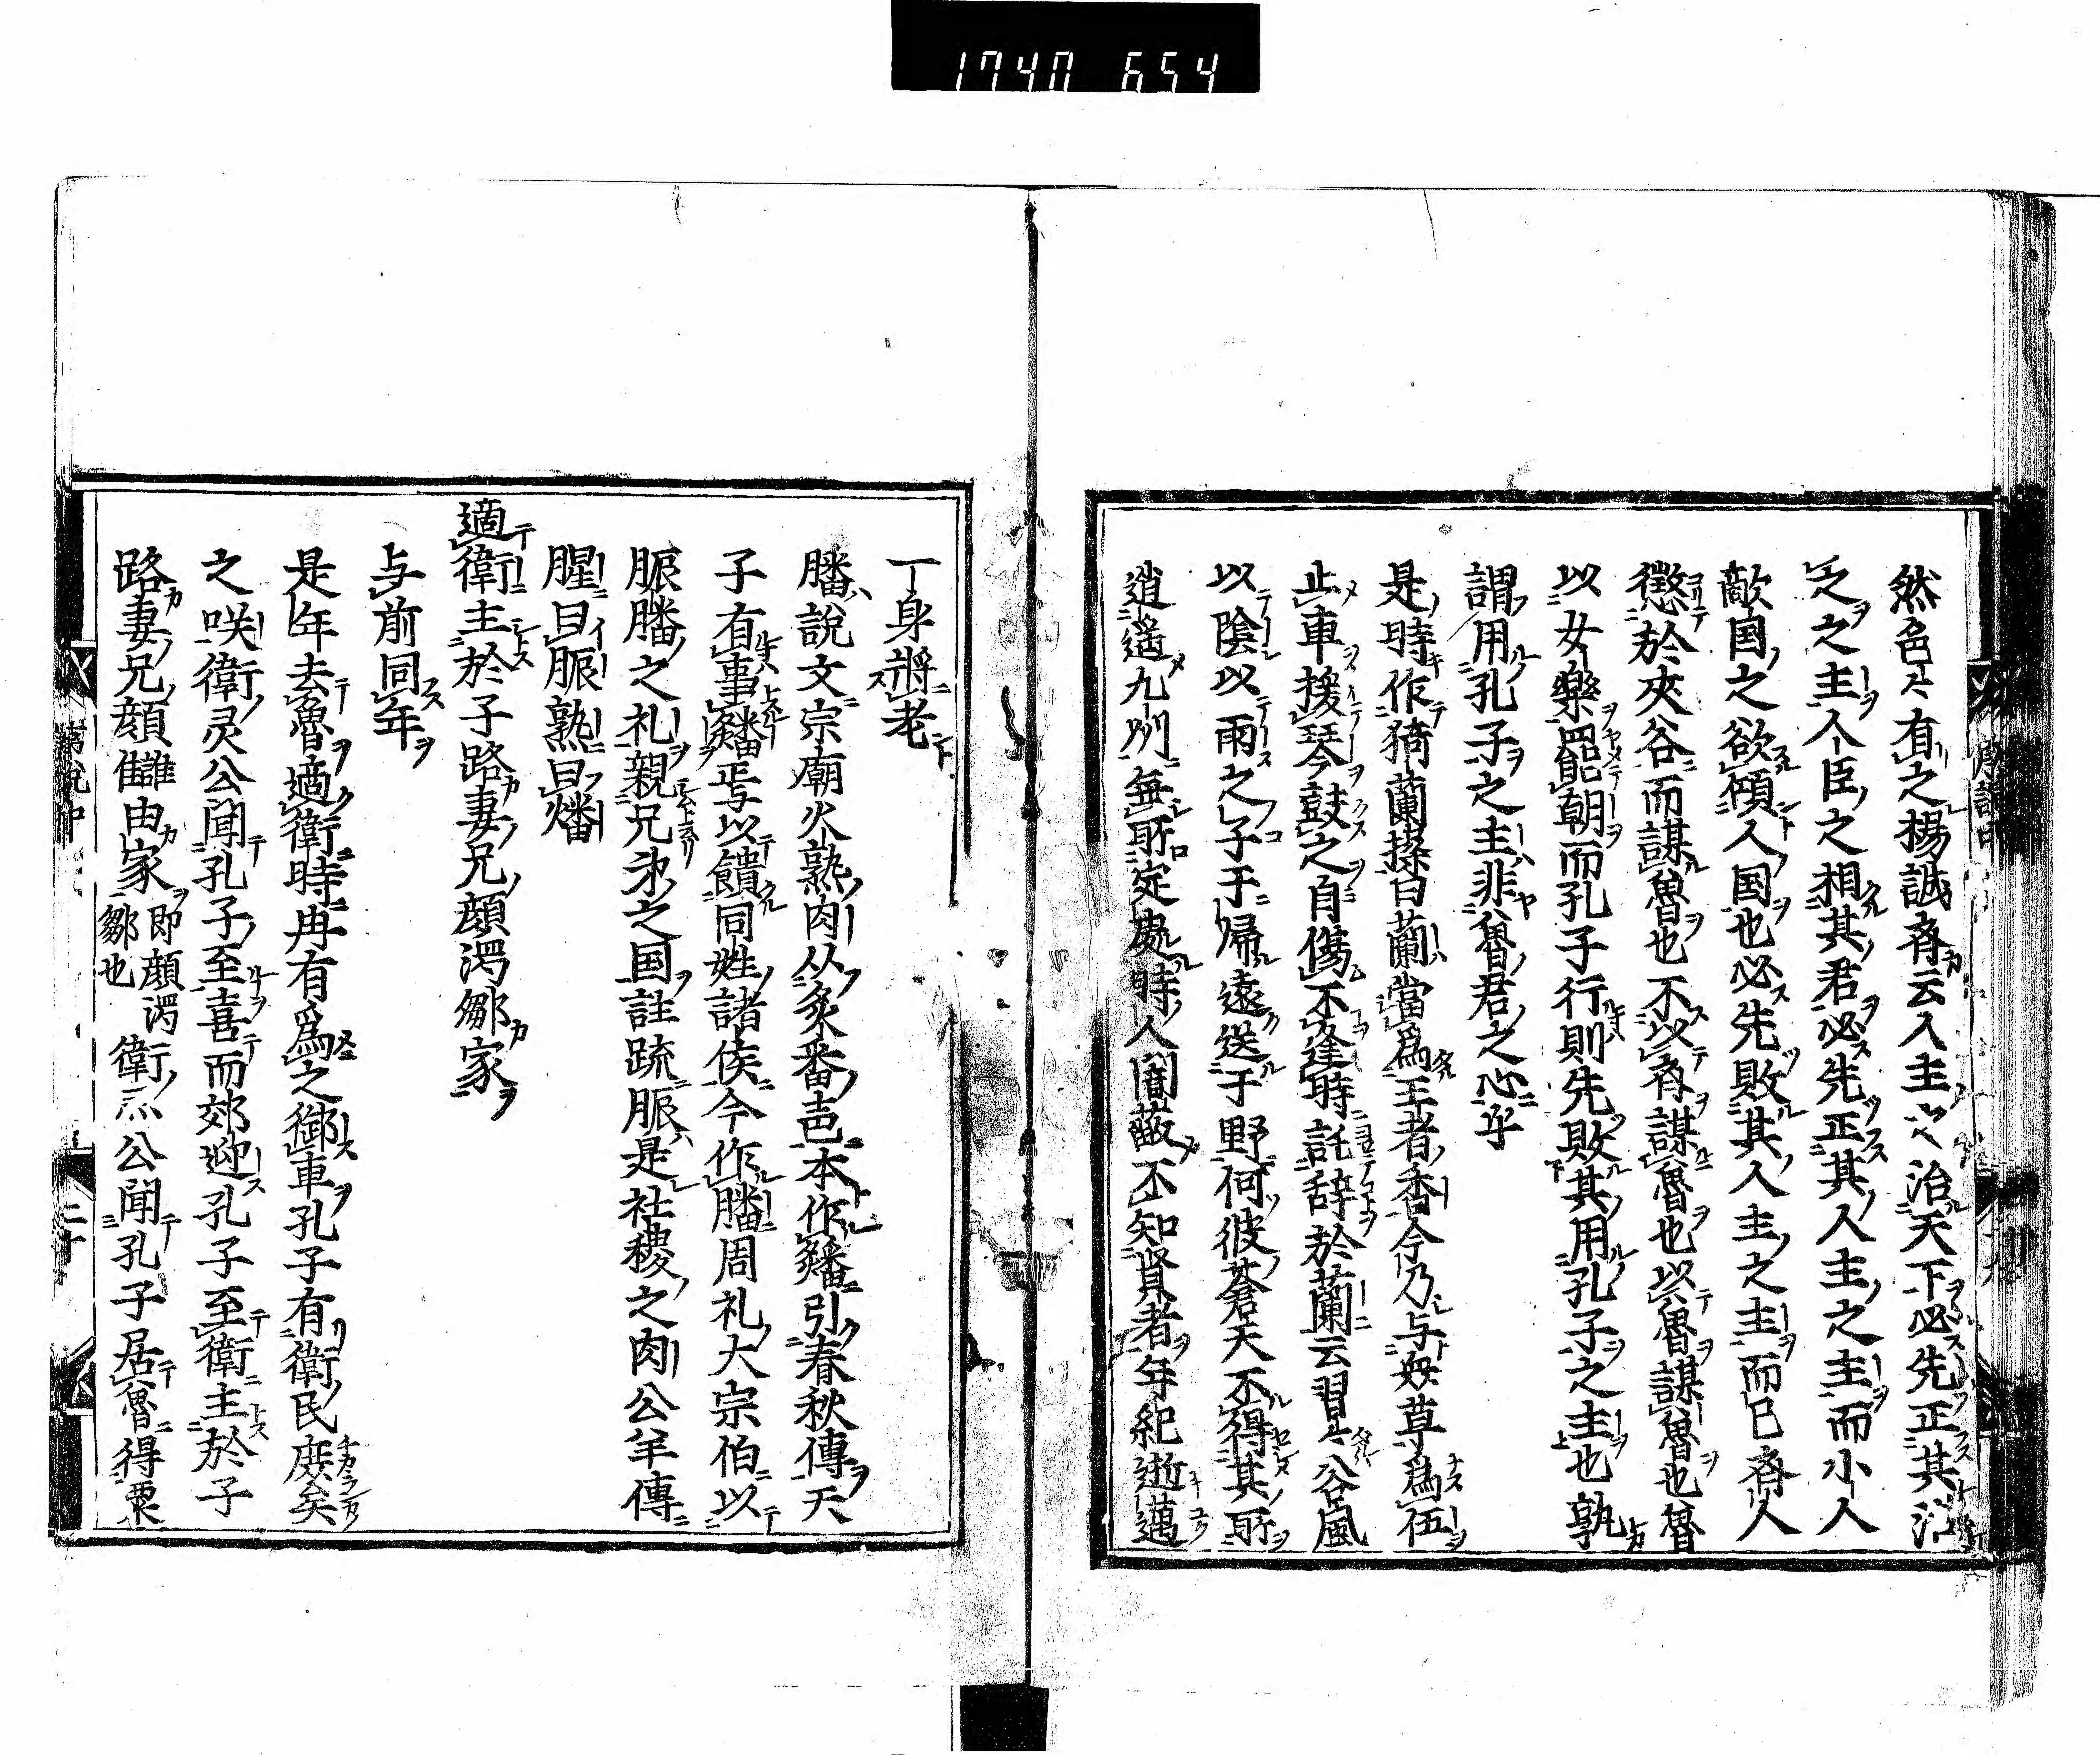 1740 654
然色ス有之楊誠斎云人主之治天下必先正其治
之之主人臣之相其君必先正其人主之主而小人
敵国之欲傾人国也必先敗其人主之主而已斎人
懲於夾谷而謀魯也不以斎謀魯也以魯謀魯也魯
以女樂罷朝而孔子行則先敗其用孔子之主也孰
謂用孔子之主非魯君之心乎
是時作猗蘭操曰蘭當為王者香今乃与衆草為伍
止車援琴鼓之自傷不逢時託辞於蘭云習々谷風
以陰以雨之子于帰遠送于野何彼蒼天不得其所
逍遥九州無所定處時人闇蔽不知賢者年紀逝邁
一身將老
膰說文宗廟火熟肉从炙番声本作䊩引春秋傳天
子有事䊩焉以饋同姓諸侯今作膰周礼大宗伯以
脤膰之礼親兄弟之国註疏脤是社稷之肉公羊傳
腥曰脤熟曰燔
適衛主於子路妻兄顔濁鄒家
与前同年
是年去魯適衛時冉有為之御車孔子有衛民庶矣
之咲衛灵公聞孔子至喜而郊迎孔子至衛主於子
路妻兄顔讎由家即顔濁鄒也衛灵公聞孔子居魯得粟
二十